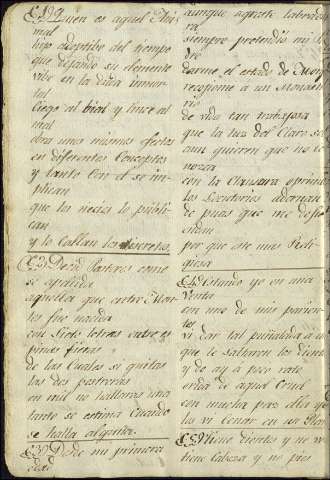 ¿Quien es aquel Ani
mal
hijo adoptibo del tiempo
que dejando su elemento
vibe en la vida inmor
tal
Ciego al bien y lince al
mal
obra unos mismos efectos
en diferentes Conceptos
y tanto con el se im
plican
que los necios lo publi
can
y lo Callan los discretos.
2ª Decid Pastores como
se apellida
aquella que entre
fue nacida
con siete letras entre es
pinas fieras
de las Cuales si quitas
las dos postreras
en mil no hallaras una
tanto se estima Cuando
se halla alguna.
3ª Desde mi primera
edad
aunque agreste labrado
ra
siempre pretendio mi Pa
dre
darme el estado de Mon
recojiome a un Monaste
rio
de vida tan
que la luz del Claro sol
aun quieren que no co
nozca
con la Clausura oprimida
los Locutorios adornan
de puas que me defi
endan
por que ate mas Reli
giosa
4ª Estando yo en una
Venta
con uno de mis parien
tes
vi dar tal puñalada a un
que le saltaron los dientes
y de ay a poco rato
con mucha paz
los vi Cenar en un Plato
5ª Tiene dientes y no
tiene Cabeza y no pies